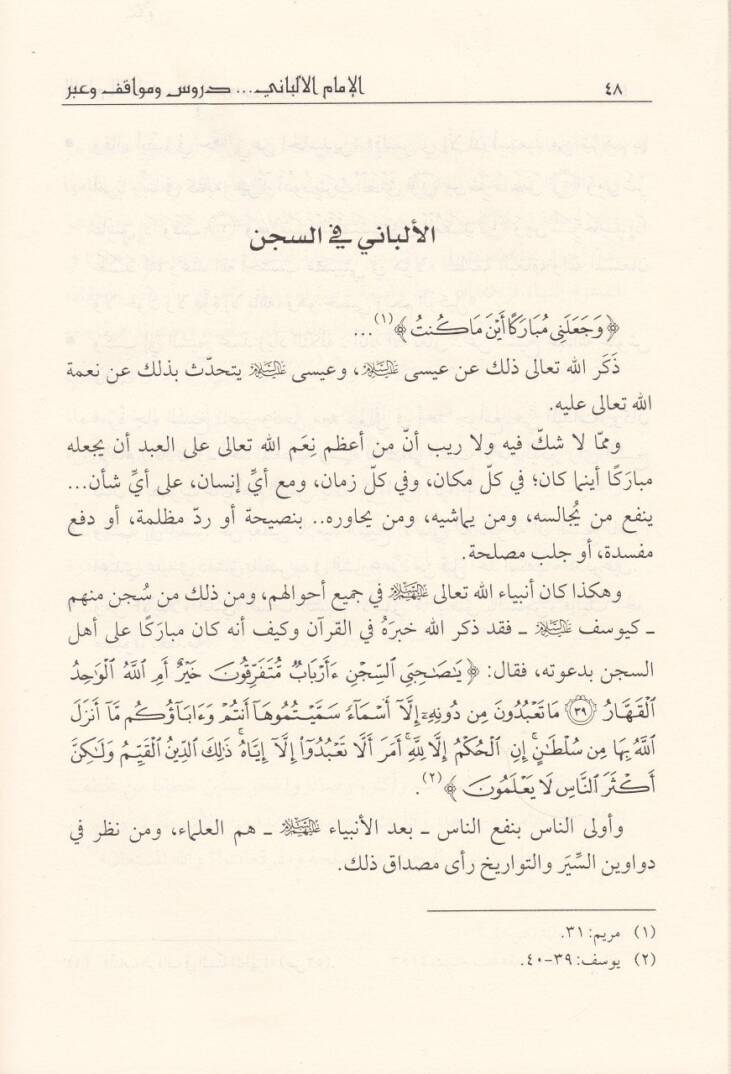 ٤٨ الإمام الألباني... دروس ومواقف وعبر
الألباني في السجن
﴿وَجَعَلَنِي مُبَارَكًا أَيْنَ مَا كُنتُ﴾(١)...
ذَكَر الله تعالى ذلك عن عيسى عليه السلام، وعيسى عليه السلام يتحدّث بذلك عن نعمة
الله تعالى عليه.
وممّا لا شكّ فيه ولا ريب أنّ من أعظم نِعَم الله تعالى على العبد أن يجعله
مبارَكًا أينما كان؛ في كلّ مكان، وفي كلّ زمان، ومع أيِّ إنسان، على أيِّ شأن...
ينفع من يُجالسه، ومن يماشيه، ومن يحاوره.. بنصيحة أو ردّ مظلمة، أو دفع
مفسدة، أو جلب مصلحة.
وهكذا كان أنبياء الله تعالى عليهم السلام في جميع أحوالهم، ومن ذلك من سُجن منهم
ـ كيوسف عليه السلام ـ فقد ذكر الله خبرَهُ في القرآن وكيف أنه كان مبارَكًا على أهل
السجن بدعوته، فقال: ﴿يَٰصَٰحِبَيِ ٱلسِّجْنِ ءَأَرْبَابٌ مُّتَفَرِّقُونَ خَيْرٌ أَمِ ٱللَّهُ ٱلْوَٰحِدُ
ٱلْقَهَّارُ ۝٣٩ مَا تَعْبُدُونَ مِن دُونِهِۦٓ إِلَّآ أَسْمَآءً سَمَّيْتُمُوهَآ أَنتُمْ وَءَابَآؤُكُم مَّآ أَنزَلَ
ٱللَّهُ بِهَا مِن سُلْطَٰنٍۚ إِنِ ٱلْحُكْمُ إِلَّا لِلَّهِۚ أَمَرَ أَلَّا تَعْبُدُوٓا۟ إِلَّآ إِيَّاهُۚ ذَٰلِكَ ٱلدِّينُ ٱلْقَيِّمُ وَلَٰكِنَّ
أَكْثَرَ ٱلنَّاسِ لَا يَعْلَمُونَ﴾(٢).
وأولى الناس بنفع الناس ـ بعد الأنبياء عليهم السلام ـ هم العلماء، ومن نظر في
دواوين السِّيَر والتواريخ رأى مصداق ذلك.
(١) مريم: ٣١.
(٢) يوسف: ٣٩-٤٠.